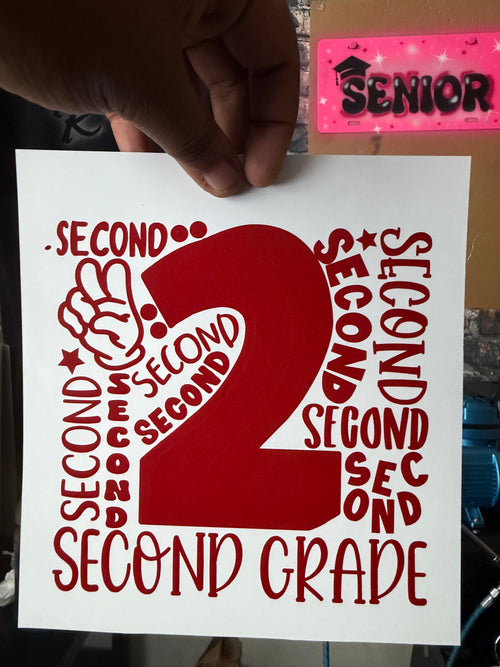 SENIOR
SECOND
2
SECOND
SECOND
SECOND
SECOND
SECOND
SECOND
SECOND
SECOND
SECOND
SECOND GRADE